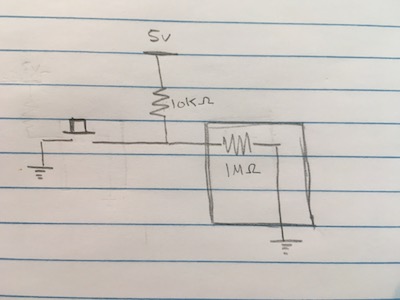 5v
10KΩ
1MΩ